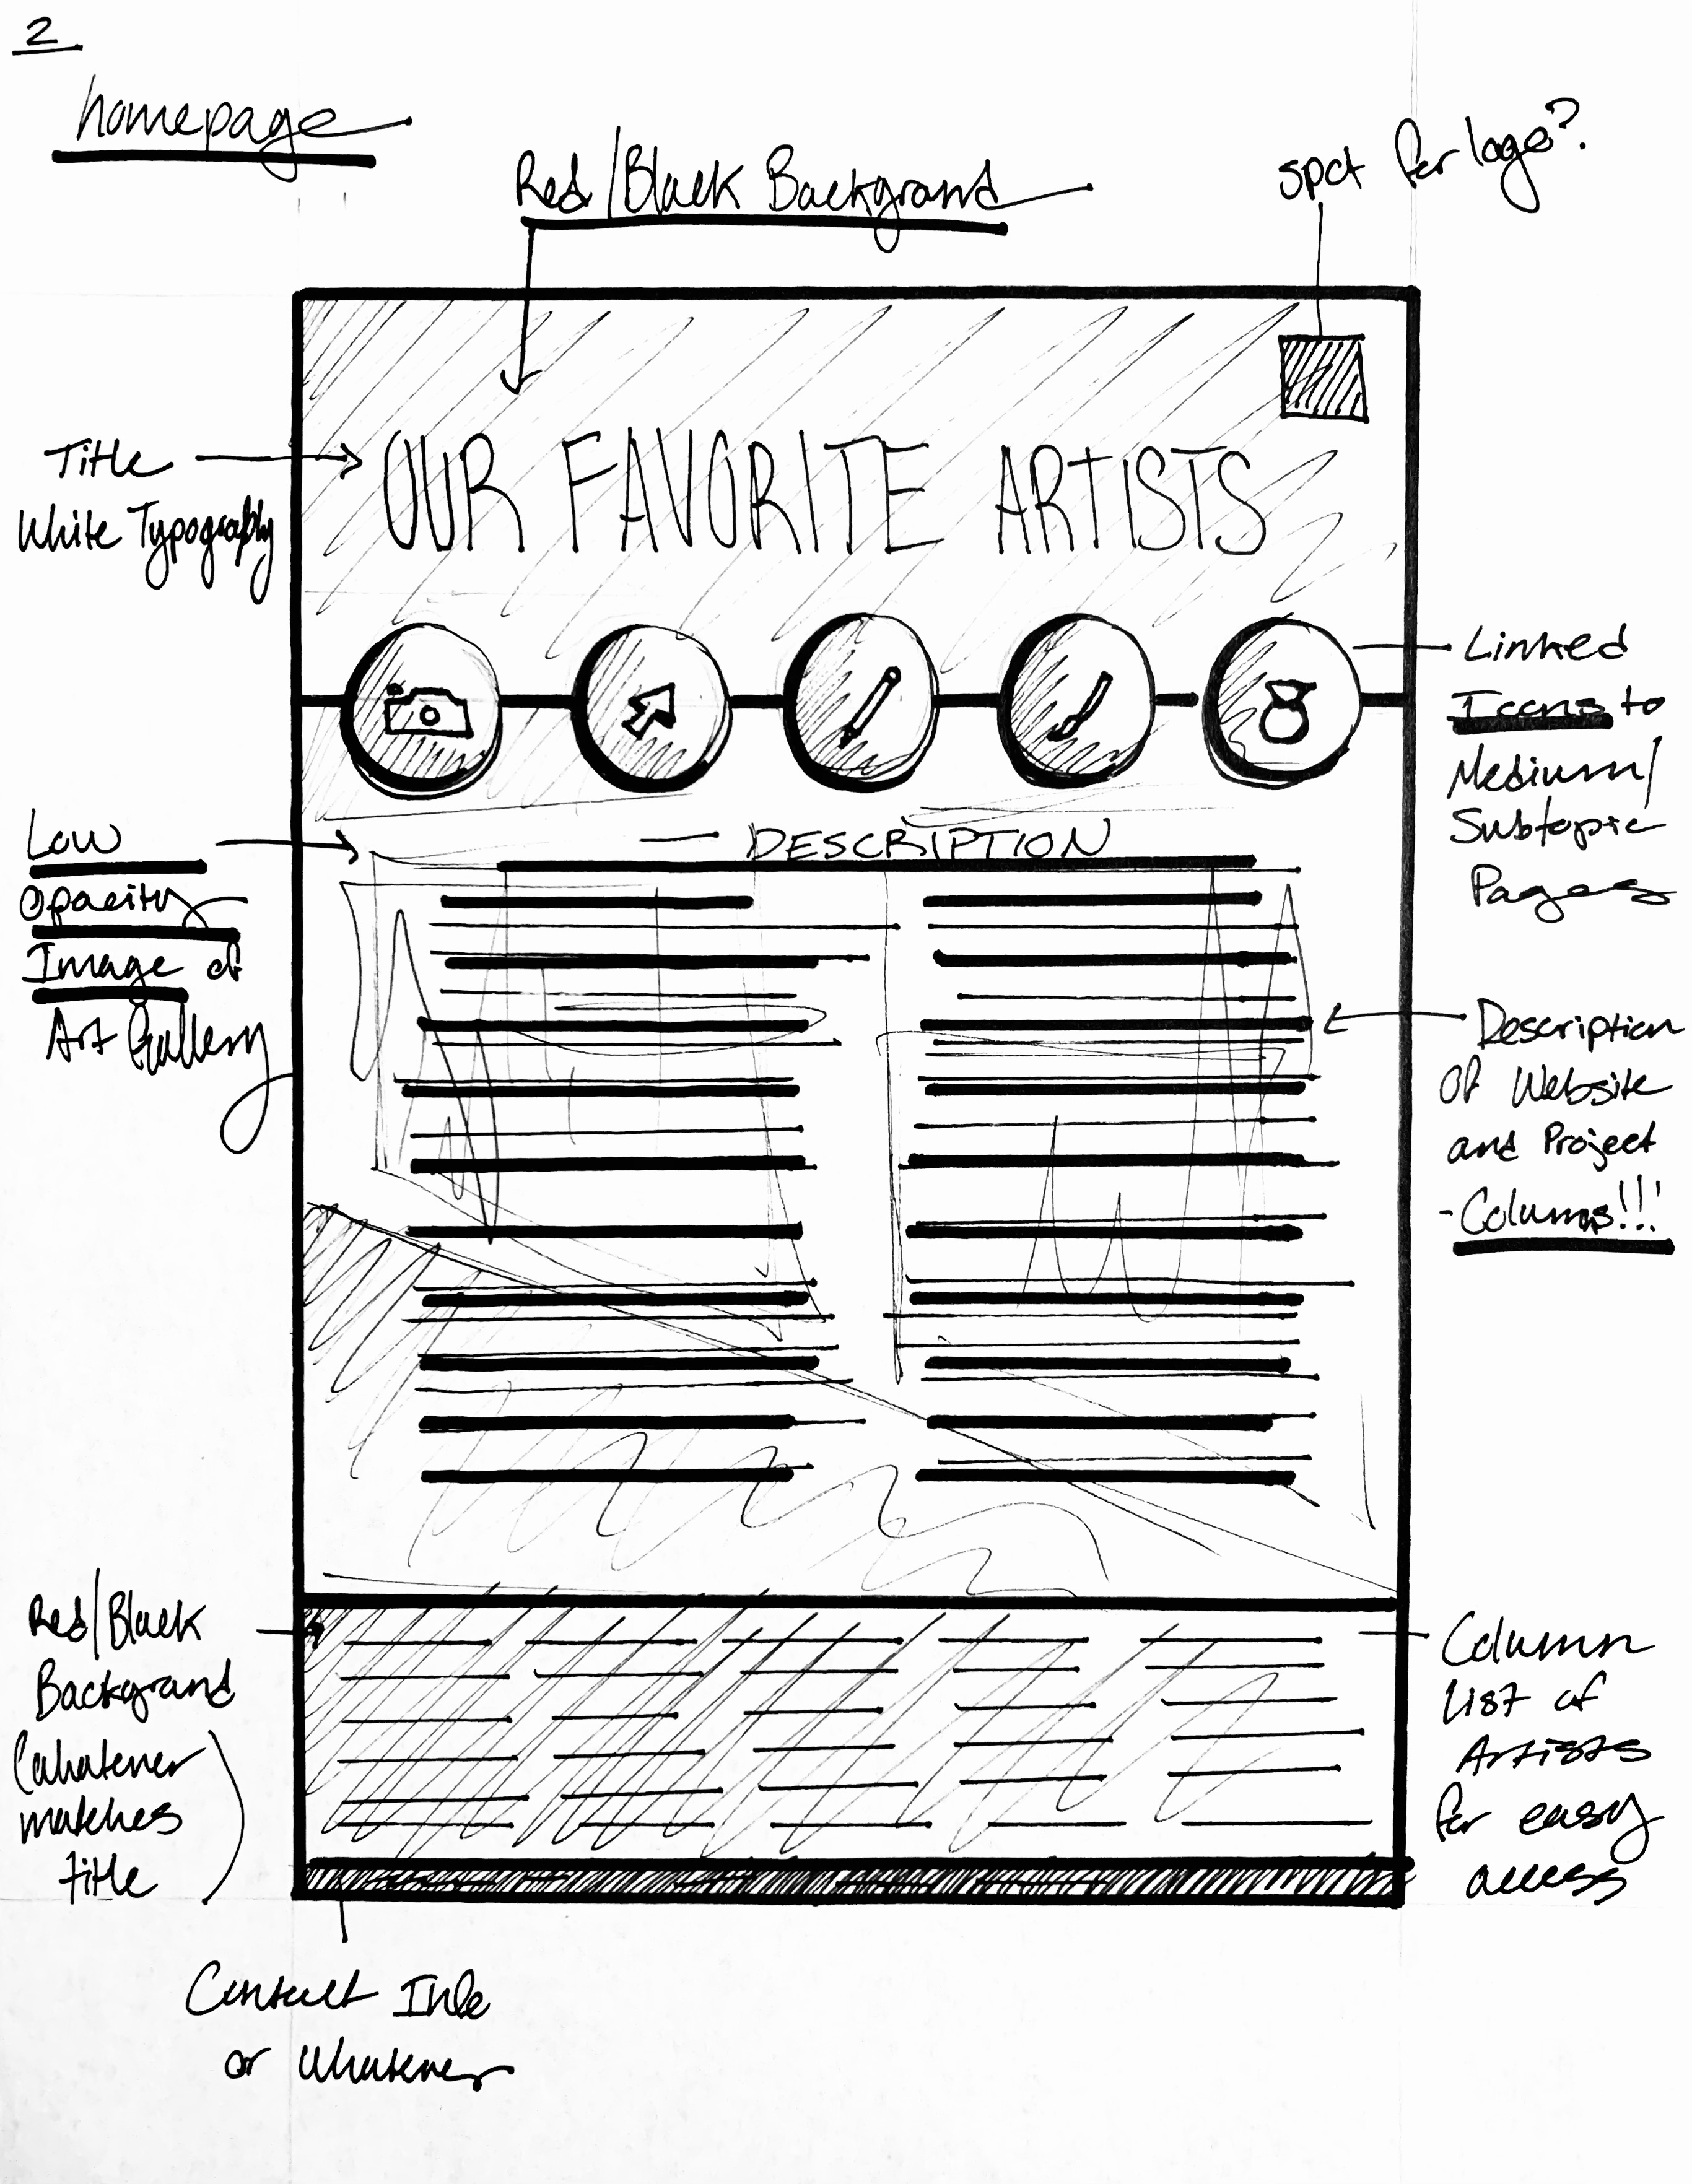 2
homepage
Red/Black Background
spot for logo?
Title
White Typography
OUR FAVORITE ARTISTS
Linked
Icons to
Medium/
Subtopic
Pages
Low
Opacity
Image of
Art Gallery
DESCRIPTION
Description
Of Website
and Project
- Columns!!!
Red/Black
Background
(whatever
matches
title)
Column
List of
Artists
for easy
access
Contact Info
or Whatever